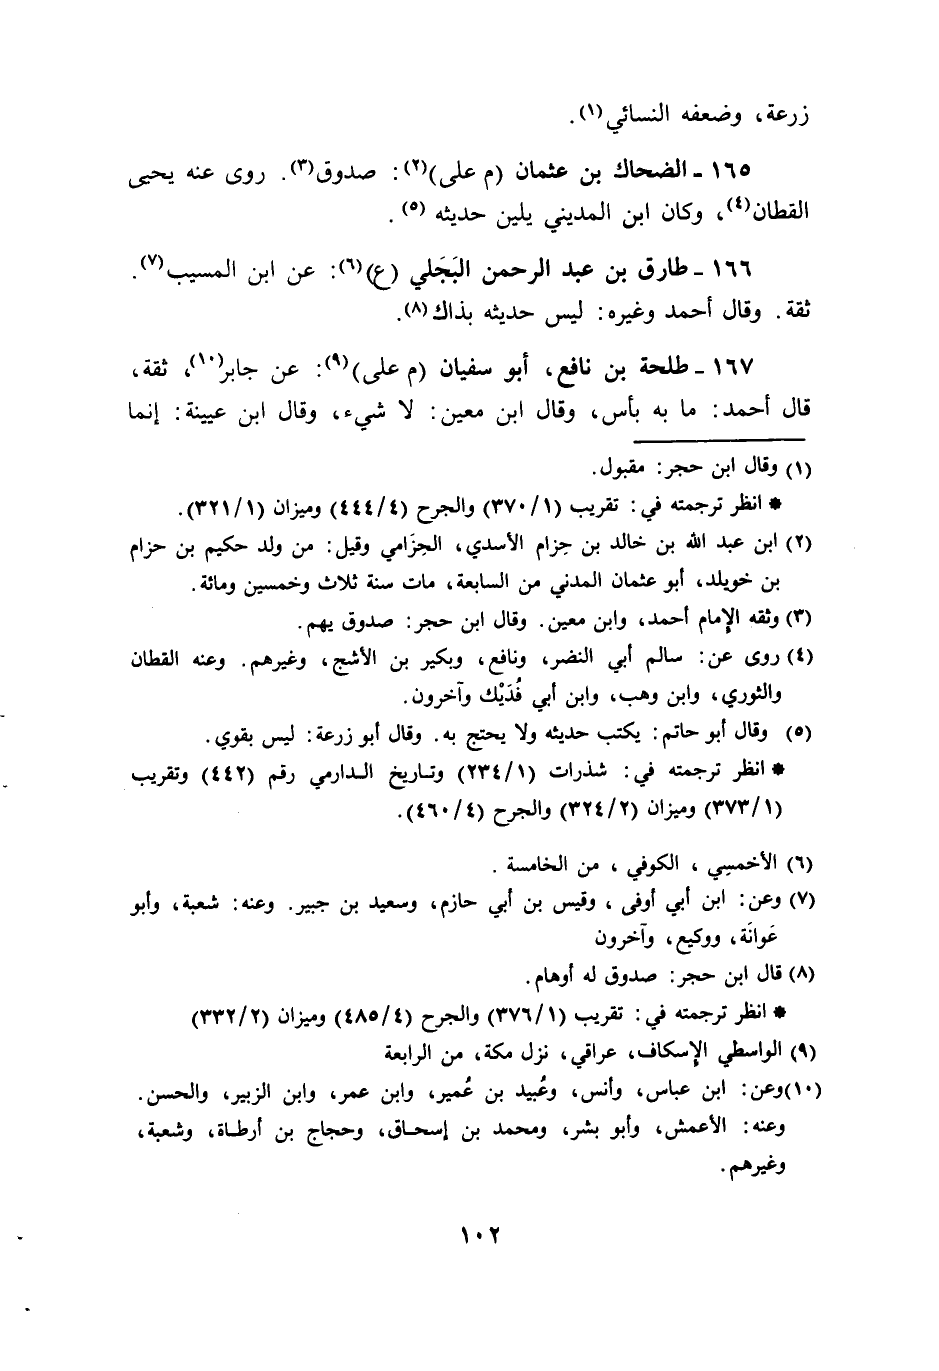 زرعة، وضعفه النسائي(١).
١٦٥ - الضحاك بن عثمان (م على)(٢): صدوق(٣). روى عنه يحيى
القطان(٤)، وكان ابن المديني يلين حديثه (٥) .
١٦٦ - طارق بن عبد الرحمن البَجَلي (ع)(٦): عن ابن المسيب(٧).
ثقة. وقال أحمد وغيره: ليس حديثه بذاك(٨).
١٦٧ - طلحة بن نافع، أبو سفيان (م على)(٩): عن جابر(١٠)، ثقة،
قال أحمد: ما به بأس، وقال ابن معين: لا شيء، وقال ابن عيينة: إنما
(١) وقال ابن حجر: مقبول.
* انظر ترجمته في: تقريب (٣٧٠/١) والجرح (٤٤٤/٤) وميزان (٣٢١/١).
(٢) ابن عبد الله بن خالد بن حِزام الأسدي، الحِزَامي وقيل: من ولد حكيم بن حزام
بن خويلد، أبو عثمان المدني من السابعة، مات سنة ثلاث وخمسين ومائة.
(٣) وثقه الإمام أحمد، وابن معين. وقال ابن حجر: صدوق يهم.
(٤) روى عن: سالم أبي النضر، ونافع، وبكير بن الأشج، وغيرهم. وعنه القطان
والثوري، وابن وهب، وابن أبي فُدَيْك وآخرون.
(٥) وقال أبو حاتم: يكتب حديثه ولا يحتج به. وقال أبو زرعة: ليس بقوي.
* انظر ترجمته في: شذرات (٢٣٤/١) وتاريخ الدارمي رقم (٤٤٢) وتقريب
(٣٧٣/١) وميزان (٣٢٤/٢) والجرح (٤٦٠/٤).
(٦) الأخمسِي ، الكوفي ، من الخامسة .
(٧) وعن: ابن أبي أوفى ، وقيس بن أبي حازم، وسعيد بن جبير. وعنه: شعبة، وأبو
عَوانَة، ووكيع، وآخرون
(٨) قال ابن حجر: صدوق له أوهام.
* انظر ترجمته في: تقريب (٣٧٦/١) والجرح (٤٨٥/٤) وميزان (٣٣٢/٢)
(٩) الواسطي الإسكاف، عراقي، نزل مكة، من الرابعة
(١٠)وعن: ابن عباس، وأنس، وعُبيد بن عُمير، وابن عمر، وابن الزبير، والحسن.
وعنه: الأعمش، وأبو بشر، ومحمد بن إسحاق، وحجاج بن أرطاة، وشعبة،
وغيرهم.
١٠٢